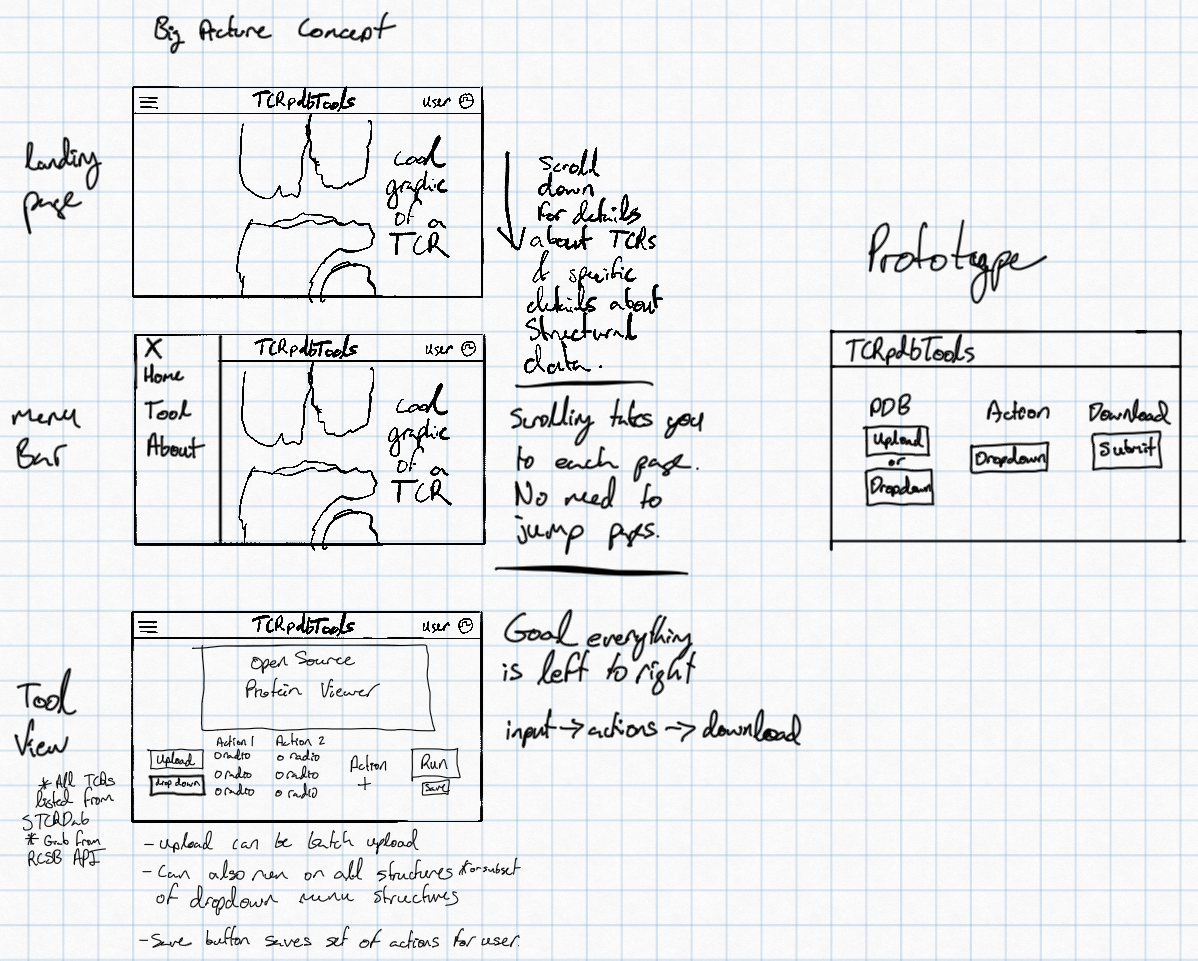 Big Picture Concept
Landing
page
TCRpdbTools
user
cool
graphic
of a
TCR
scroll
down
for details
about TCRs
& specific
details about
structural
data.
Menu
Bar
X
Home
Tool
About
TCRpdbTools
user
cool
graphic
of a
TCR
Scrolling takes you
to each page.
No need to
jump pages.
Tool
View
* All TCRs
listed from
STCRDab
* Grab from
RCSB API
TCRpdbTools
user
Open Source
Protein Viewer
Upload
drop down
Action 1
o radio
o radio
o radio
Action 2
o radio
o radio
o radio
Action
+
Run
Save
Goal everything
is left to right
input → actions → download
- upload can be batch upload
- Can also run on all structures *or subset
of dropdown menu structures
- Save button saves set of actions for user.
Prototype
TCRpdbTools
PDB
Upload
or
Dropdown
Action
Dropdown
Download
Submit